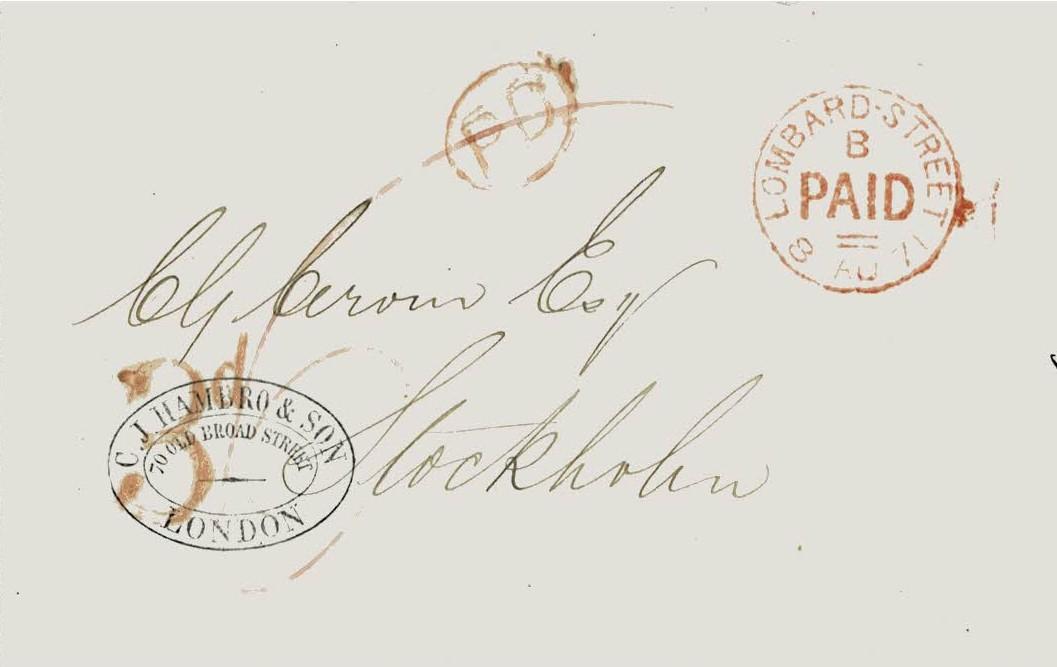 PD
LOMBARD·STREET
B
PAID
8 AU 71
Cerom Esq
Stockholm
3d
C. J. HAMBRO & SON
70 OLD BROAD STREET
LONDON